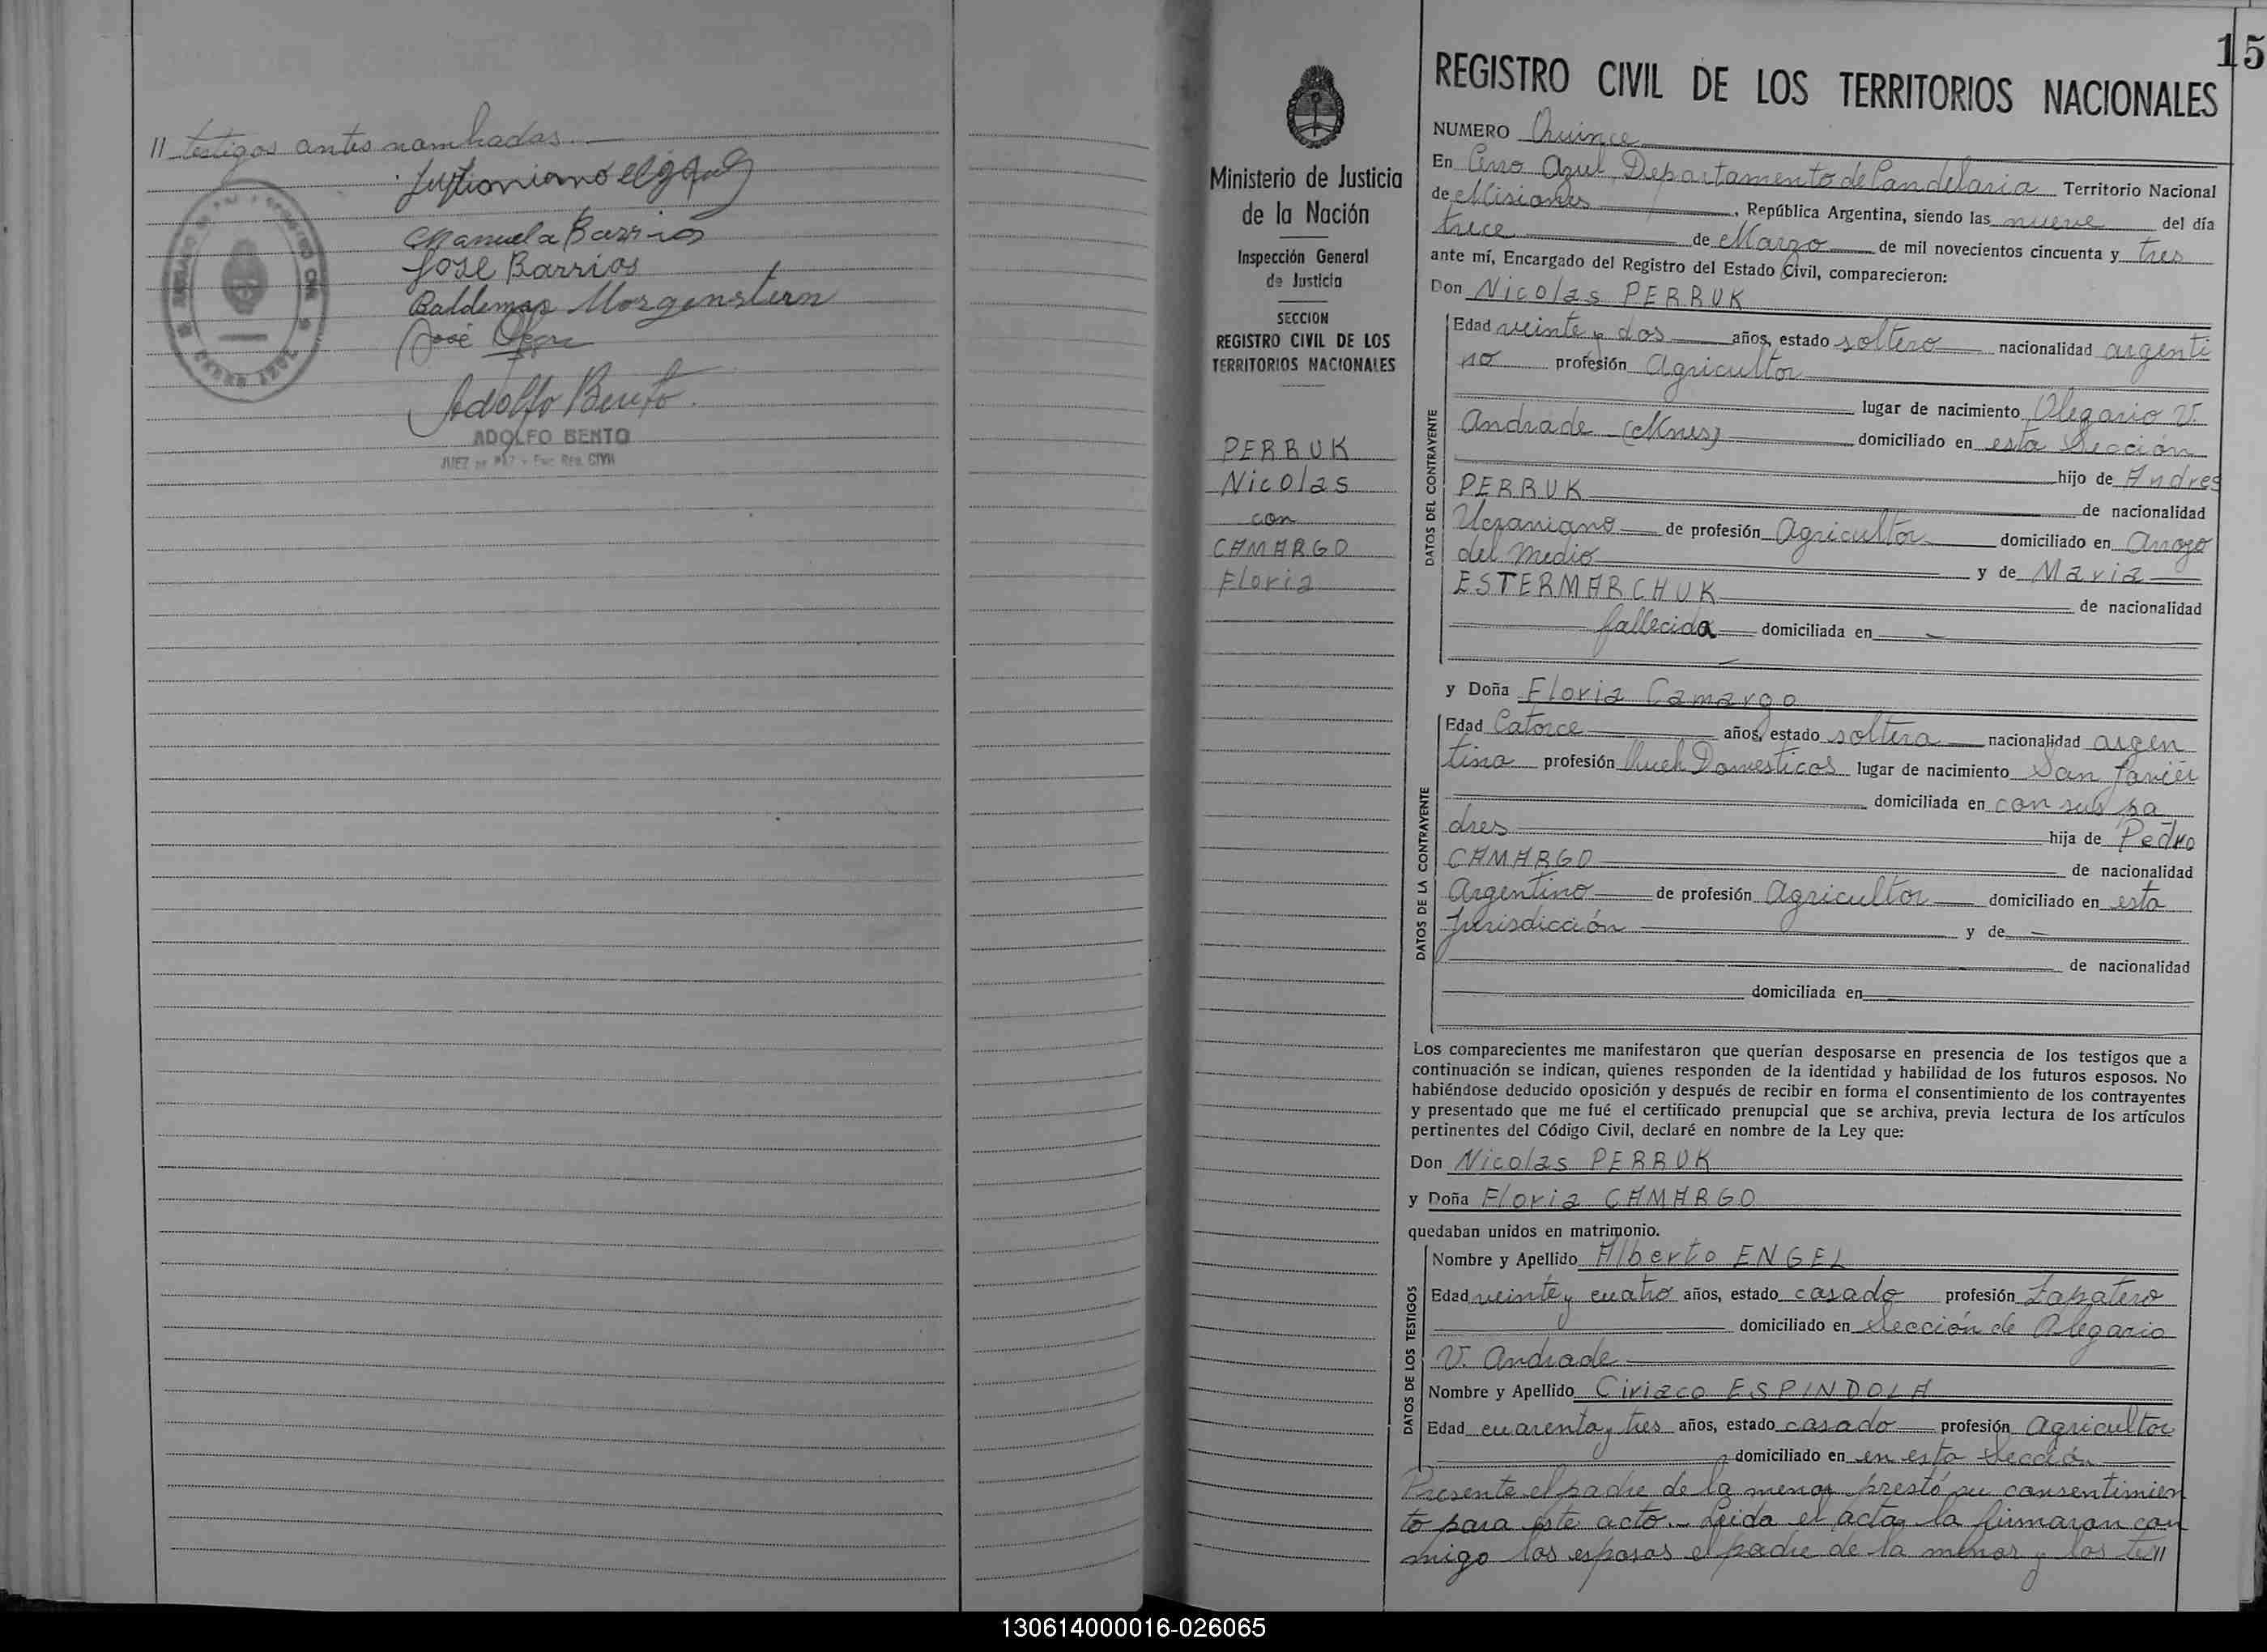 // testigos antes nombrados.—
Manuela Barrios
Jose Barrios
Baldemar Morgenstern
José
Adolfo Bento.
ADOLFO BENTO
JUEZ DE PAZ - Enc. Reg. CIVIL
15
REGISTRO CIVIL DE LOS TERRITORIOS NACIONALES
Ministerio de Justicia
de la Nación
Inspección General
de Justicia
SECCION
REGISTRO CIVIL DE LOS
TERRITORIOS NACIONALES
PERRUK
Nicolas
con
CAMARGO
Floria
NUMERO Quince
En Cerro Azul, Departamento de Candelaria Territorio Nacional
de Misiones, República Argentina, siendo las nueve del día
trece de Marzo de mil novecientos cincuenta y tres
ante mí, Encargado del Registro del Estado Civil, comparecieron:
Don Nicolas PERRUK
DATOS DEL CONTRAYENTE
Edad veinte y dos años, estado soltero nacionalidad argenti
no profesión Agricultor
lugar de nacimiento Olegario V.
Andrade (Mnes) domiciliado en esta Sección
hijo de Andres
PERRUK de nacionalidad
Ucraniano de profesión Agricultor domiciliado en Arroyo
del Medio y de Maria
ESTERMARCHUK de nacionalidad
fallecida domiciliada en —
y Doña Floria Camargo
DATOS DE LA CONTRAYENTE
Edad Catorce años, estado soltera nacionalidad argen
tina profesión Queh Domesticos lugar de nacimiento San Javier
domiciliada en con sus pa
dres hija de Pedro
CAMARGO de nacionalidad
Argentino de profesión Agricultor domiciliado en esta
Jurisdicción y de —
de nacionalidad
domiciliada en
Los comparecientes me manifestaron que querían desposarse en presencia de los testigos que a
continuación se indican, quienes responden de la identidad y habilidad de los futuros esposos. No
habiéndose deducido oposición y después de recibir en forma el consentimiento de los contrayentes
y presentado que me fué el certificado prenupcial que se archiva, previa lectura de los artículos
pertinentes del Código Civil, declaré en nombre de la Ley que:
Don Nicolas PERRUK
y Doña Floria CAMARGO
quedaban unidos en matrimonio.
DATOS DE LOS TESTIGOS
Nombre y Apellido Alberto ENGEL
Edad veinte y cuatro años, estado casado profesión Zapatero
domiciliado en Sección de Olegario
V. Andrade
Nombre y Apellido Ciriaco ESPINDOLA
Edad cuarenta y tres años, estado casado profesión Agricultor
domiciliado en en esta Sección
Presente el padre de la menor prestó su consentimien
to para este acto.— Leida el acta, la firmaron con
migo los esposos el padre de la menor y los tes//
130614000016-026065